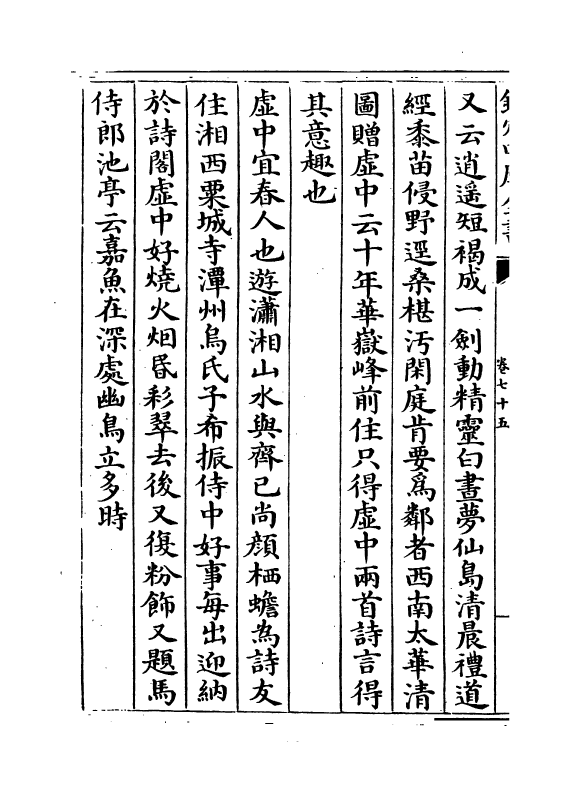 欽定四庫全書
卷七十五
又云逍遥短褐成一劍動精靈白晝夢仙島清晨禮道
經黍苗侵野逕桑椹汚閑庭肯要為鄰者西南太華清
圖贈虚中云十年華嶽峰前住只得虚中兩首詩言得
其意趣也
虚中宜春人也遊瀟湘山水與齊已尚顔栖蟾為詩友
住湘西粟城寺潭州烏氏子希振侍中好事每出迎納
於詩閣虚中好燒火烟昏彩翠去後又復粉飾又題馬
侍郎池亭云嘉魚在深處幽鳥立多時